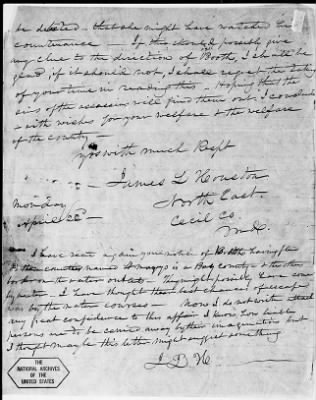 be detected - that she might have watched his
countenance - If this should possibly give
any clue to the direction of Booth, I shall be
glad, if it should not, I shall regret, the taking
of your time in reading this - Hoping that the
sins of the assassins will find them out, I conclude
with wishes for your welfare & the welfare
of the country -
yrs with much Rept
James L Houston
North East.
Cecil Co.
Md.
Monday
April 22 -
I have seen again your notice of Booth having
the counties named St Marys is a Bay county &
took on the water
I have thought their best chances of escape
was by the water courses - Now I do not with
any great confidence to this affair I know how liable
persons are to be carried away by their imagination but
I thought maybe this letter might suggest something
THE
NATIONAL ARCHIVES
OF THE
UNITED STATES